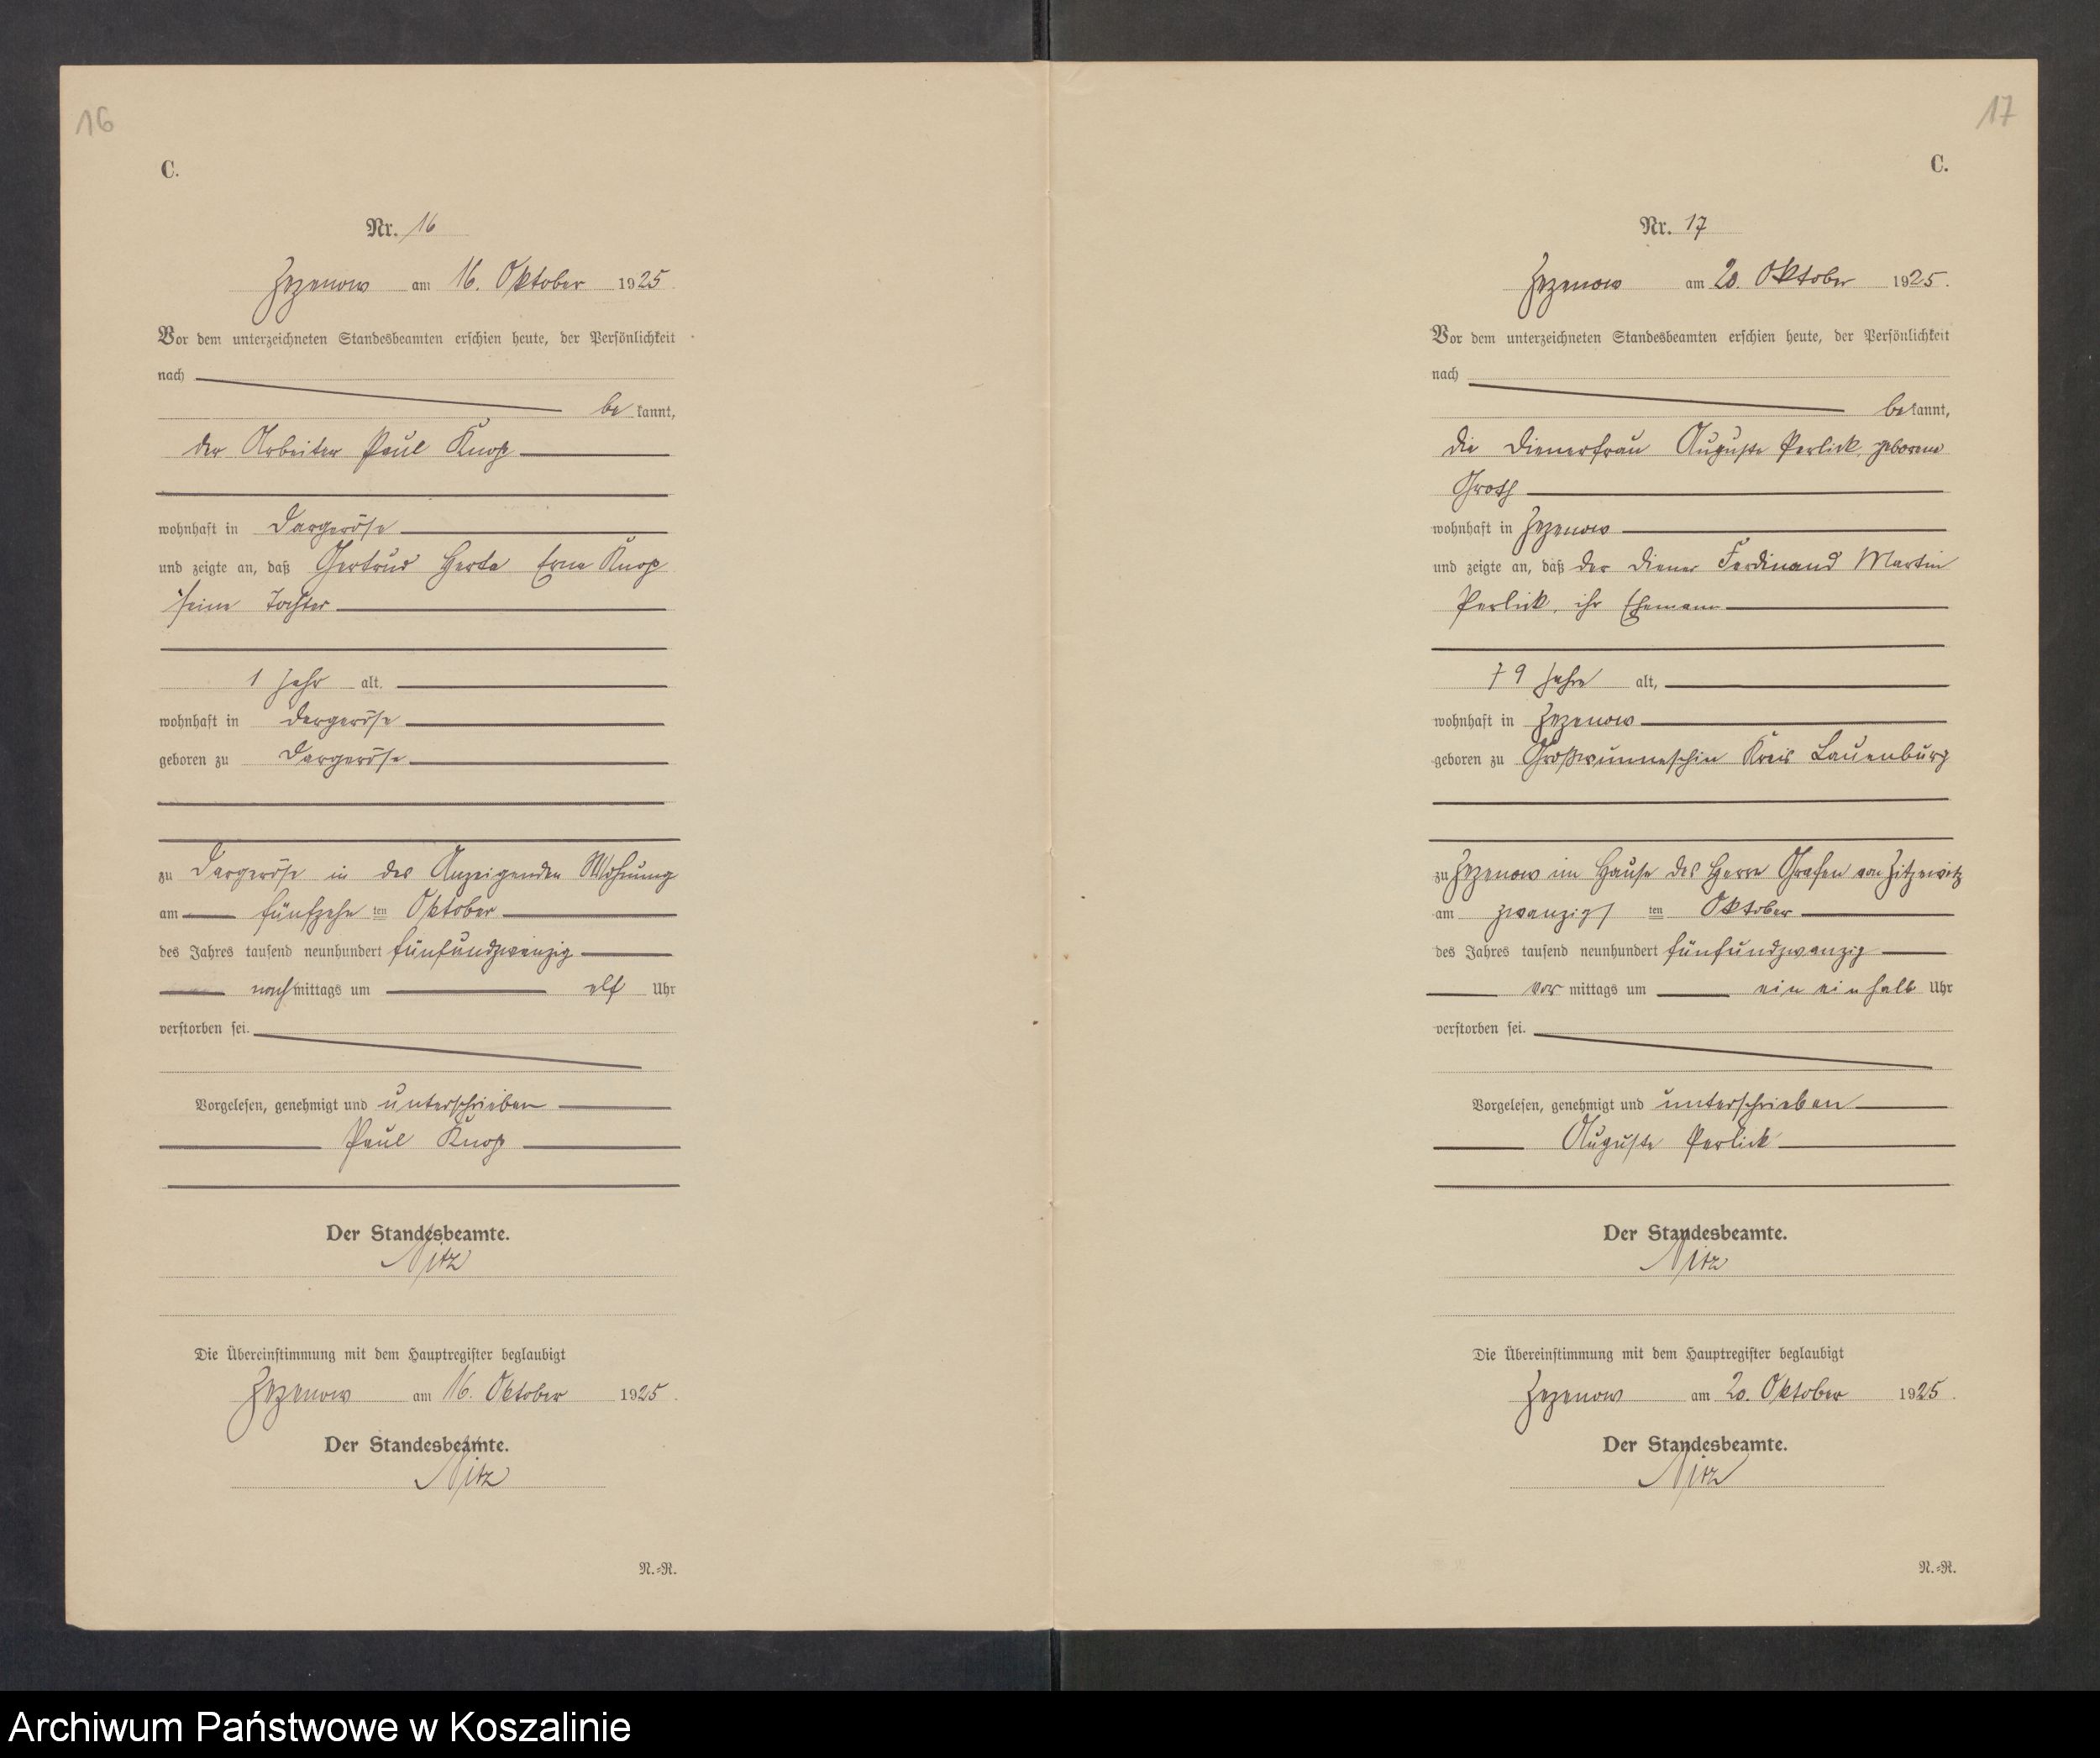 16
C.
Nr. 16
Zezenow am 16. Oktober 1925.
Vor dem unterzeichneten Standesbeamten erschien heute, der Persönlichkeit
nach
bekannt,
der Arbeiter Paul Knop
wohnhaft in Dargeröse
und zeigte an, daß Gertrud Herta Erna Knop
seine Tochter
1 Jahr alt,
wohnhaft in Dargeröse
geboren zu Dargeröse
zu Dargeröse in des Anzeigenden Wohnung
am fünfzehnten Oktober
des Jahres tausend neunhundert fünfundzwanzig
nachmittags um elf Uhr
verstorben sei.
Vorgelesen, genehmigt und unterschrieben
Paul Knop
Der Standesbeamte.
Nitz
Die Übereinstimmung mit dem Hauptregister beglaubigt
Zezenow am 16. Oktober 1925.
Der Standesbeamte.
Nitz
N.=R.
17
C.
Nr. 17
Zezenow am 20. Oktober 1925.
Vor dem unterzeichneten Standesbeamten erschien heute, der Persönlichkeit
nach
bekannt,
die Dienerfrau Auguste Perlick, geborene
Groth
wohnhaft in Zezenow
und zeigte an, daß der Diener Ferdinand Martin
Perlick, ihr Ehemann
79 Jahre alt,
wohnhaft in Zezenow
geboren zu Großwunneschin Kreis Lauenburg
zu Zezenow im Hause des Herrn Grafen von Zitzewitz
am zwanzigsten Oktober
des Jahres tausend neunhundert fünfundzwanzig
vormittags um ein einhalb Uhr
verstorben sei.
Vorgelesen, genehmigt und unterschrieben
Auguste Perlick
Der Standesbeamte.
Nitz
Die Übereinstimmung mit dem Hauptregister beglaubigt
Zezenow am 20. Oktober 1925.
Der Standesbeamte.
Nitz
N.=R.
Archiwum Państwowe w Koszalinie